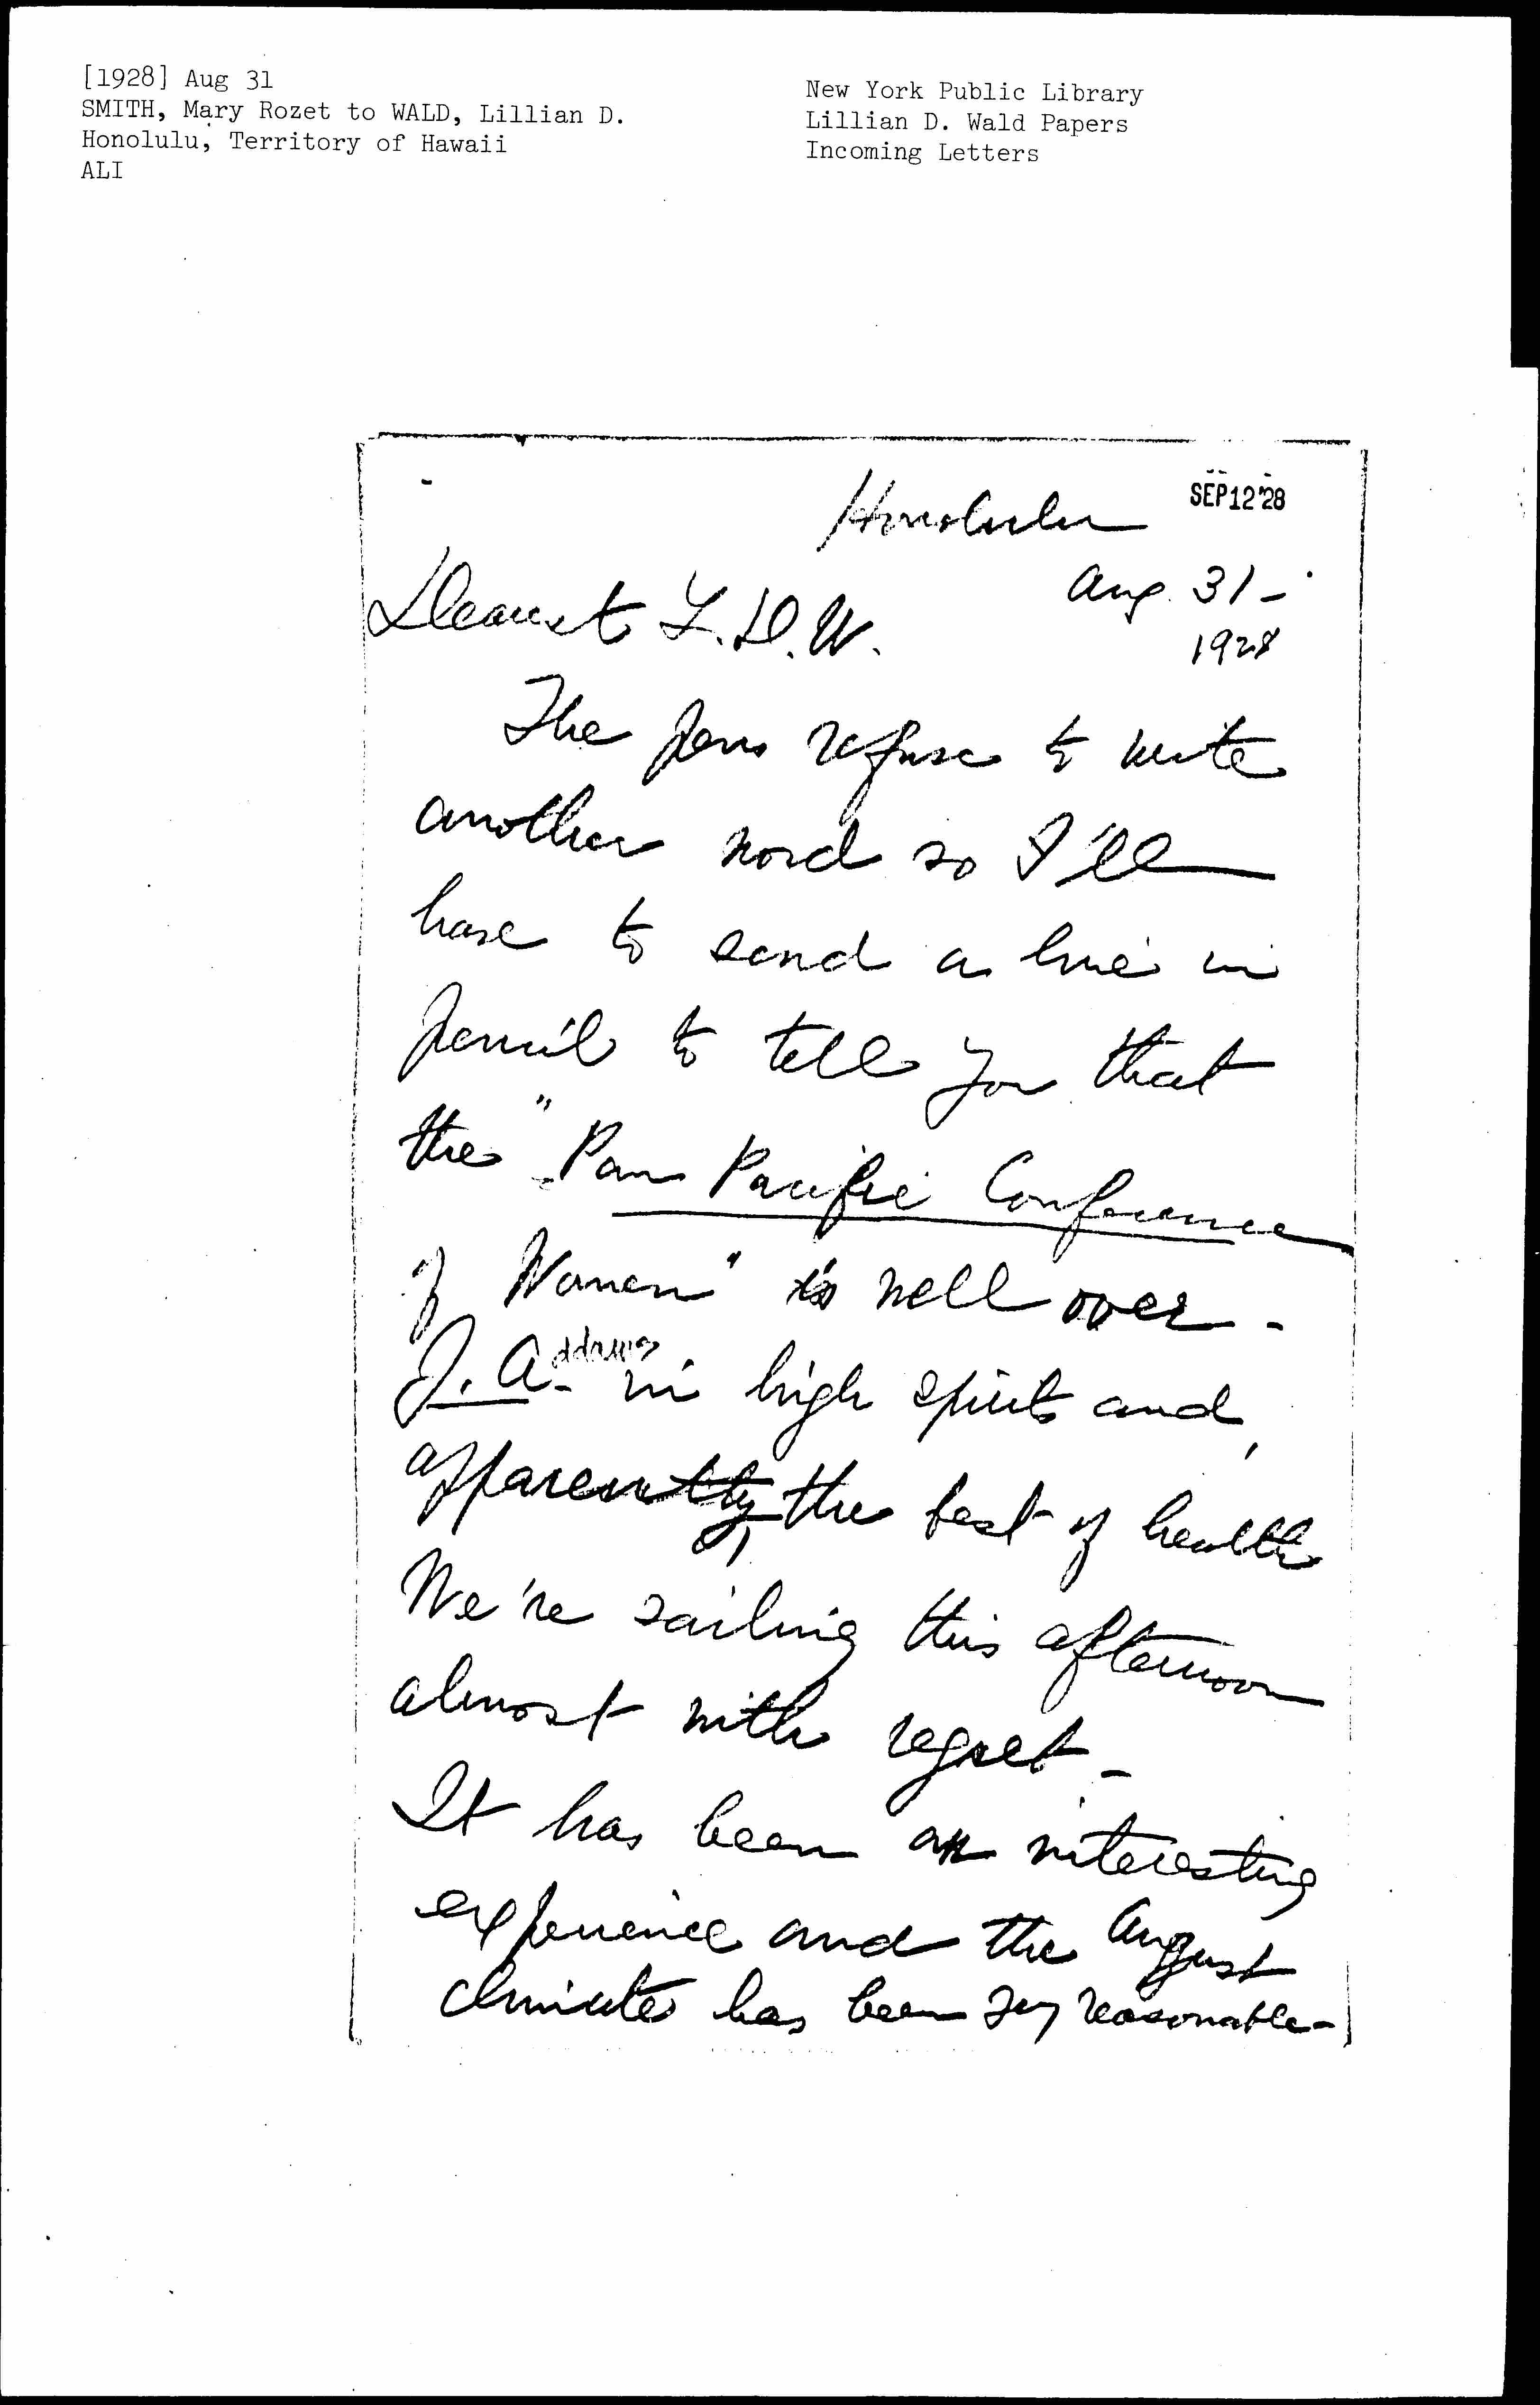 [1928] Aug 31
SMITH, Mary Rozet to WALD, Lillian D.
Honolulu, Territory of Hawaii
ALI
New York Public Library
Lillian D. Wald Papers
Incoming Letters
Honolulu
SEP12'28
Aug. 31-
1928
Dearest L.D.W.
The pens refuse to write
another word so I'll
have to send a line in
pencil to tell you that
the "Pan Pacific Conference
of Women" is well over-
J. Addams in high spirits and,
apparently, the best of health
We're sailing this afternoon
almost with regret-
It has been an interesting
experience and the August
climate has been very reasonable-